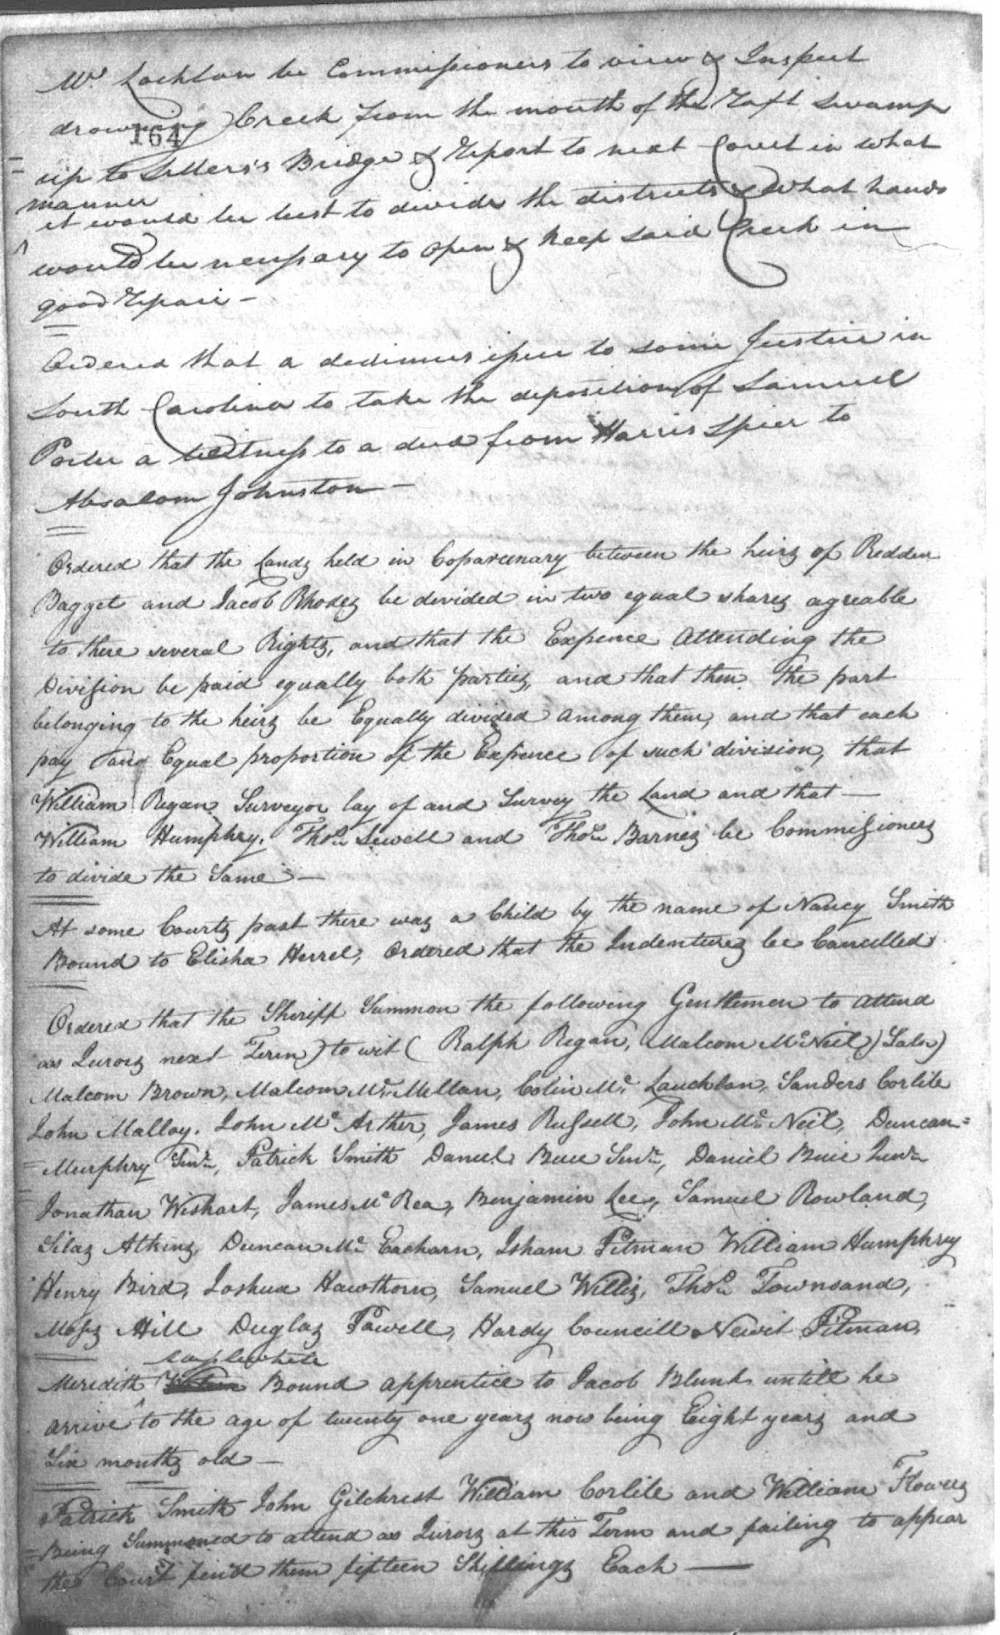 Mc Lachlan be Commissioners to view & Inspect
drowning Creek from the mouth of the Raft swamp
164
up to Sellers's Bridge & Report to next Court in what
manner
it would be best to divide the districts & what hands
would be necessary to open & keep said Creek in
good repair —
Ordered that a dedimus issue to some Justice in
South Carolina to take the deposition of Samuel
Porter a witness to a deed from Harris Spier to
Absalom Johnston —
Ordered that the Lands held in Coparcenary between the heirs of Redden
Bagget and Jacob Rhodes be divided in two equal shares agreable
to there several Rights, and that the Expence attending the
Division be paid equally both parties, and that then the part
belonging to the heirs be Equally divided among them, and that each
pay and Equal proportion of the Expence of such division, that
William Regan Surveyor lay of and Survey the Land and that —
William Humphry, Thos. Sewell and Thos. Barnes be Commissioners
to divide the Same —
At some Courts past there was a Child by the name of Nancy Smith
Bound to Elisha Herrel, Ordered that the Indentures be Cancelled
Ordered that the Sheriff Summon the following Gentlemen to attend
as Jurors next Term) to wit ( Ralph Regan, Malcom McNeil)
Malcom Brown, Malcom McMillan, Colin Mc Lauchlan, Sanders Corlile
John Malloy, John Mc Arther, James Russell, John Mc Neil, Duncan=
Murphry Senr., Patrick Smith Daniel Buie Senr., Daniel Buie Junr.
Jonathan Wishart, James McRea, Benjamin Lee, Samuel Rowland,
Silas Atkins, Duncan Mc Eacharn, Isham Pitman William Humphry
Henry Bird, Joshua Hawthorn, Samuel Willis, Thos. Townsand,
Moses Hill Duglas Powell, Hardy Councill Newit Pitman,
Meridith Bound apprentice to Jacob Blunt untill he
arrive to the age of twenty one years now being Eight years and
Six months old —
Patrick Smith John Gilchrist William Corlile and William Flowers
Being Summoned to attend as Jurors at this Term and failing to appear
the Court fined them fifteen Shillings Each —